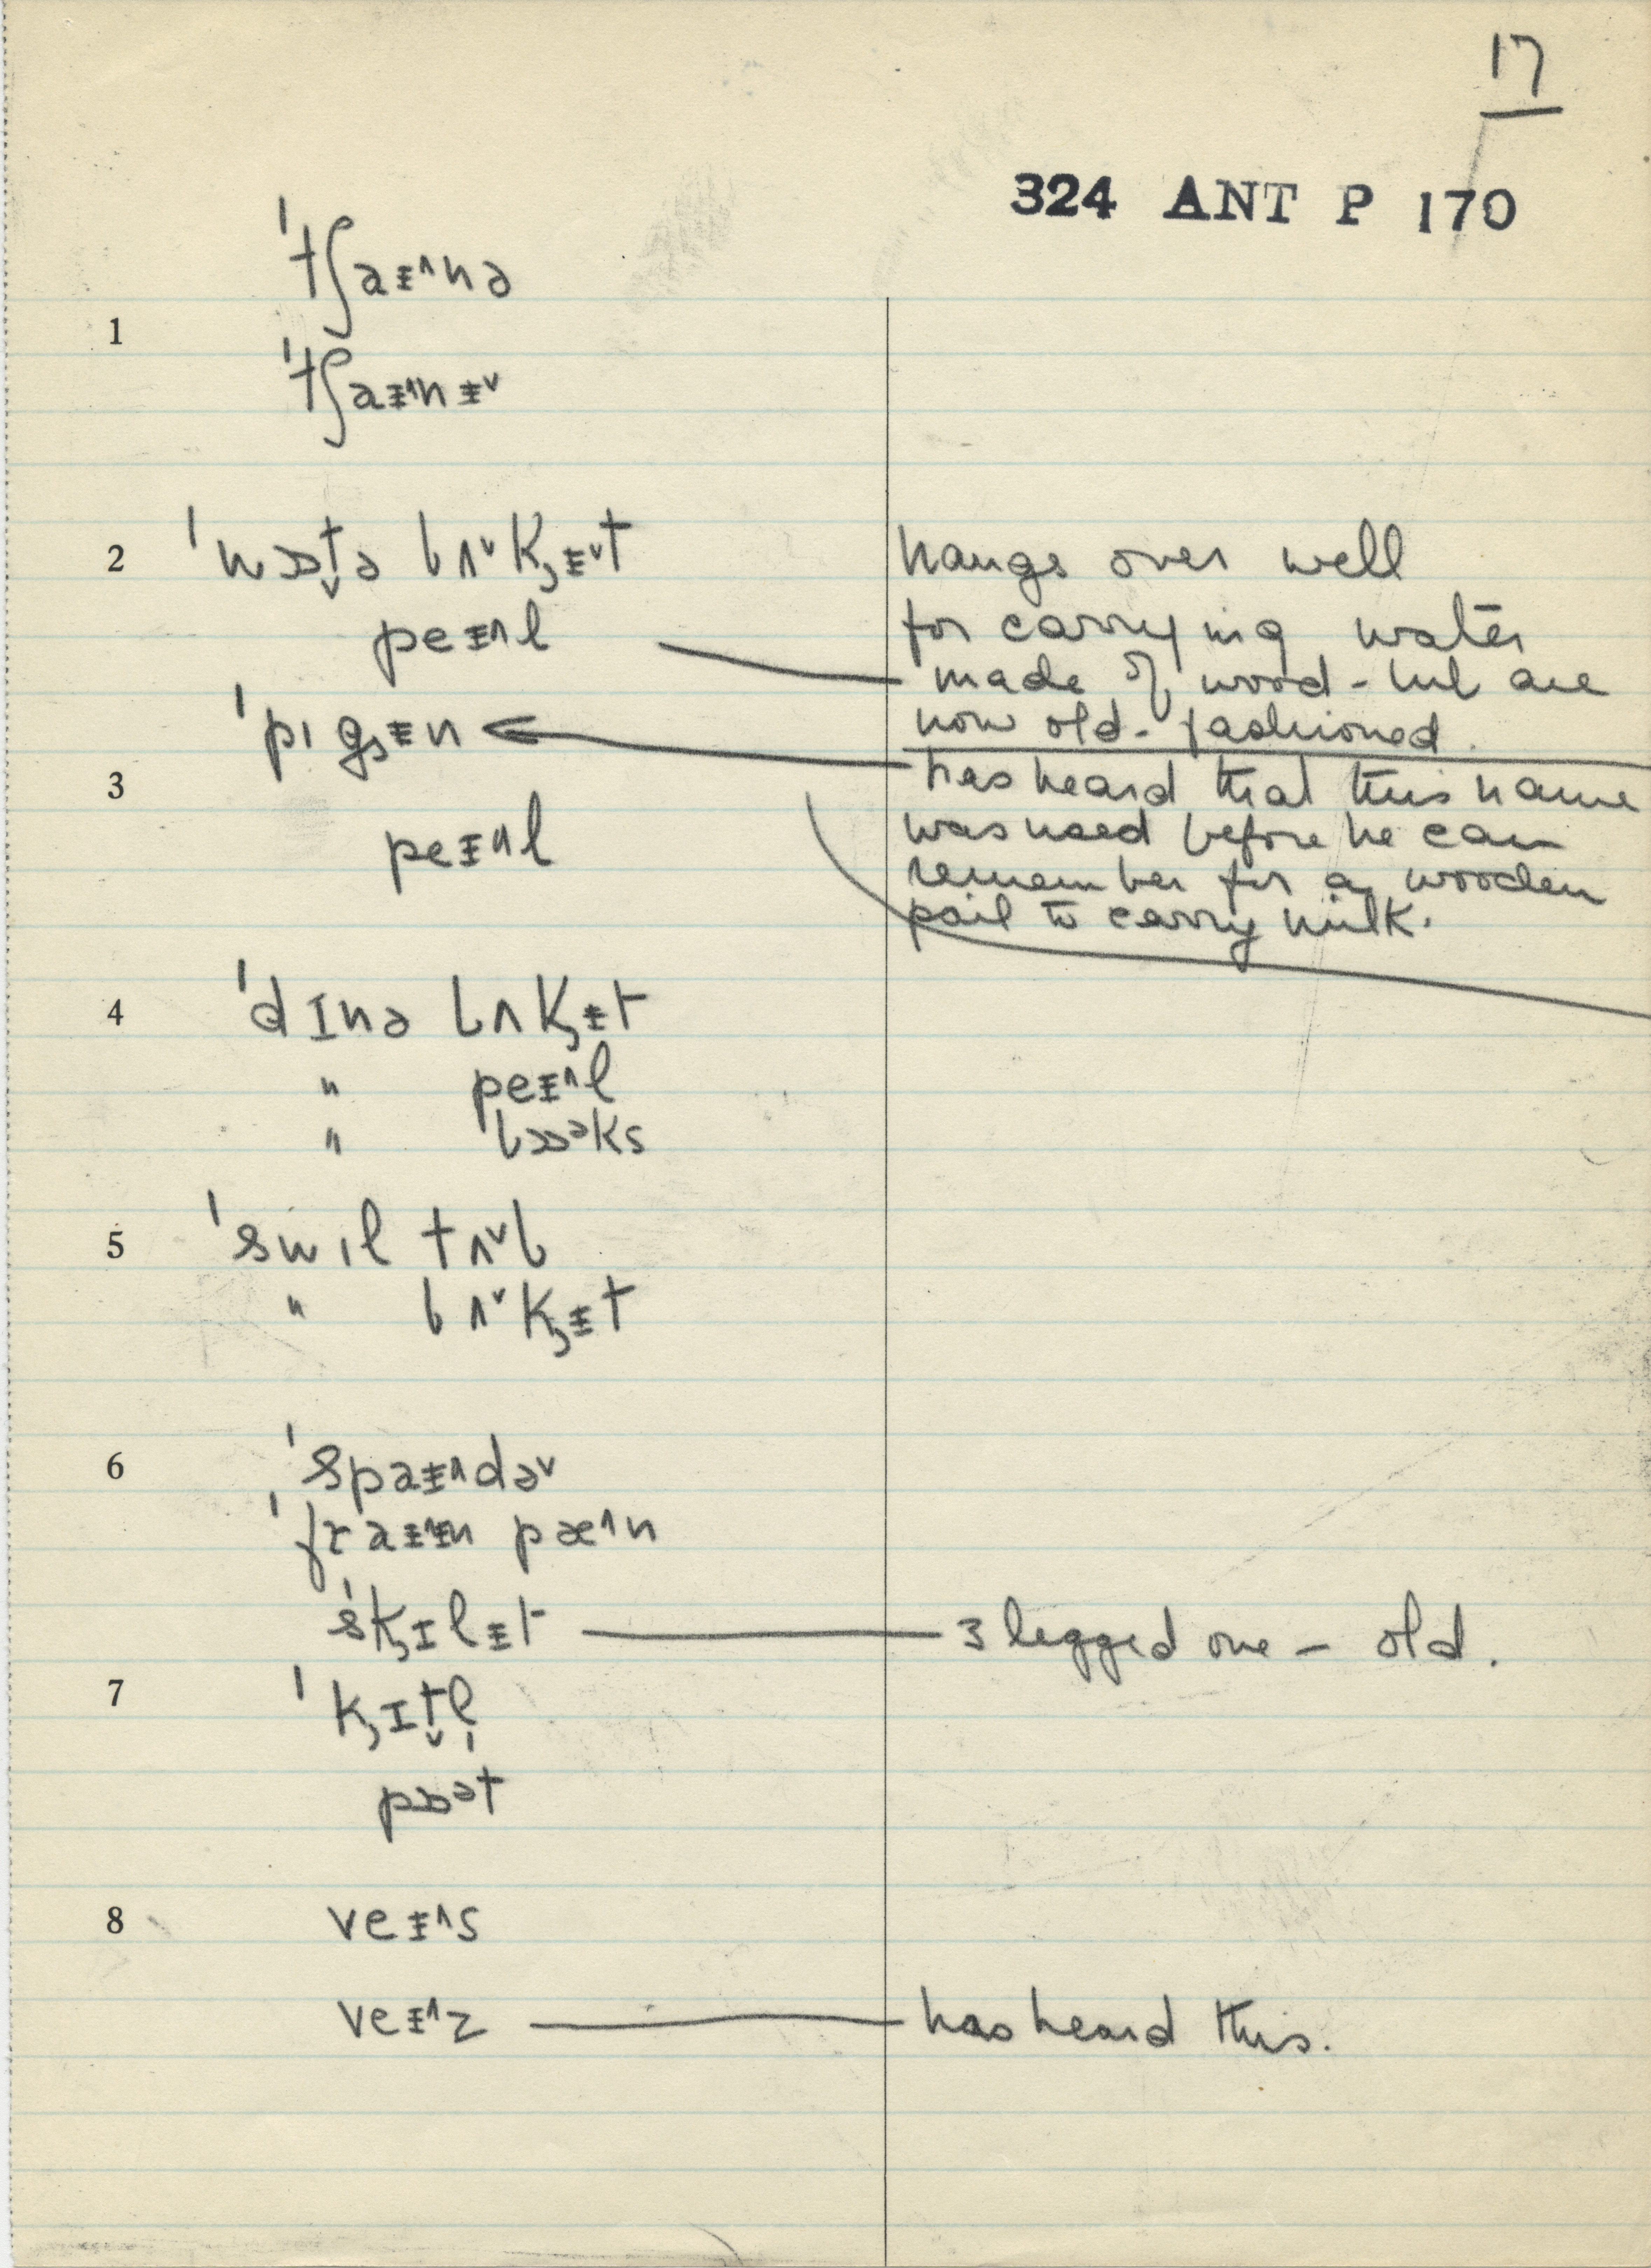 17
324 ANT P 170
ˈtʃaᵻ˄nə
1
ˈtʃaᵻ˄nᵻ˅
2 ˈwɒt̬ə bʌ˅k̡ᵻ˅t hangs over well
peᵻ˄l for carrying water
made of wood - but are
ˈpɪg̡ᵻn now old-fashioned.
3 has heard that this name
was used before he can
peᵻ˄l remember for a wooden
pail to carry milk.
4 ˈdɪnə bʌk̡ᵻt
" peᵻ˄l
" bɒᵊks
5 ˈswɪl tʌ˅b
" bʌ˅k̡ᵻt
6 ˈspaᵻ˄də˅
ˈfraᵻ˄ᵻn pæ˄n
ˈsk̡ɪlᵻt 3 legged one - old.
7 ˈk̡ɪt̬l̩
pɒᵊt
8 veᵻ˄s
veᵻ˄z has heard this.